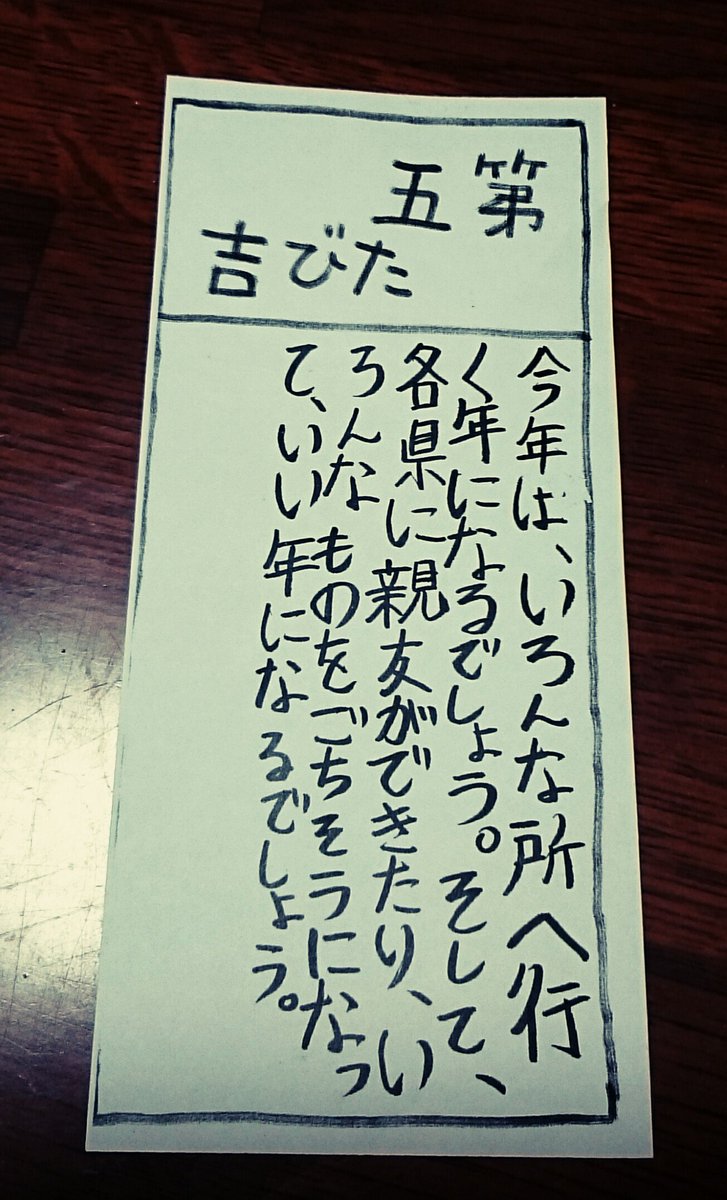 第
五
たび吉
今年は、いろんな所へ行
く年になるでしょう。そして、
各県に親友ができたり、い
ろんなものをごちそうになっ
て、いい年になるでしょう。